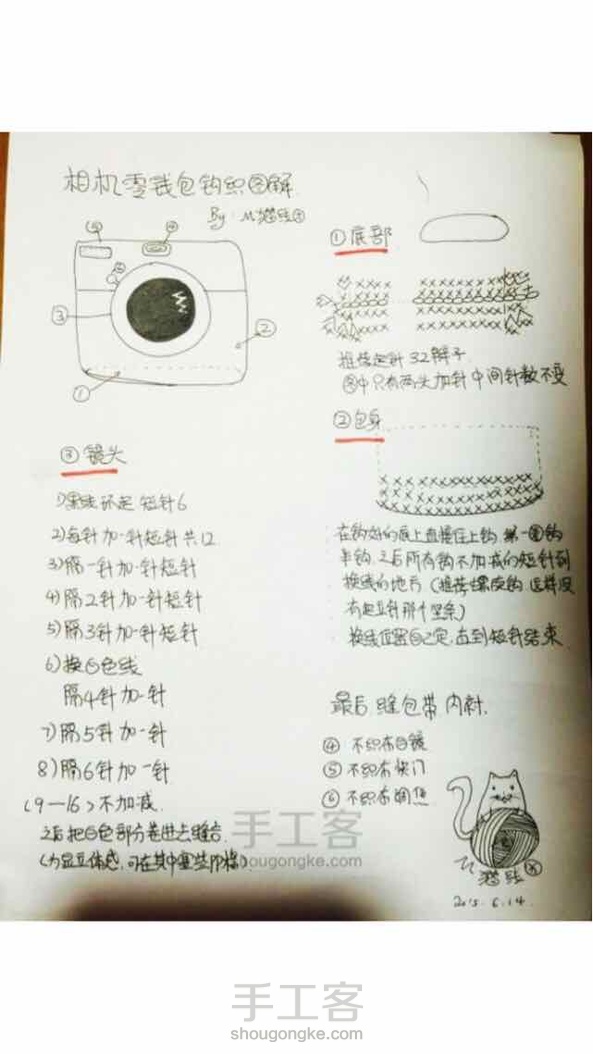 相机零钱包钩织图解
By:
⑤
④
⑥
③
②
①
①底部
推荐起针32辫子
图中只有两头加针中间针数不变
②包身
在钩好的底上直接往上钩,第一圈钩
半钩,之后所有钩不加减的短针到
换线的地方(推荐螺旋钩,这样没
有起立针那个竖条)
换线位置自己定,直到短针结束
③镜头
1)黑线环起 短针6
2)每针加一针短针 共12
3)隔一针加一针短针
4)隔2针加一针短针
5)隔3针加一针短针
6)换白色线
隔4针加一针
7)隔5针加一针
8)隔6针加一针
(9—16)不加减
之后把白色部分卷进去缝合
(为显立体感,可在其中塞些
最后 缝包带 内衬.
④ 不织布目镜
⑤ 不织布快门
⑥ 不织布
2015.6.14.
手工客
shougongke.com
手工客
shougongke.com